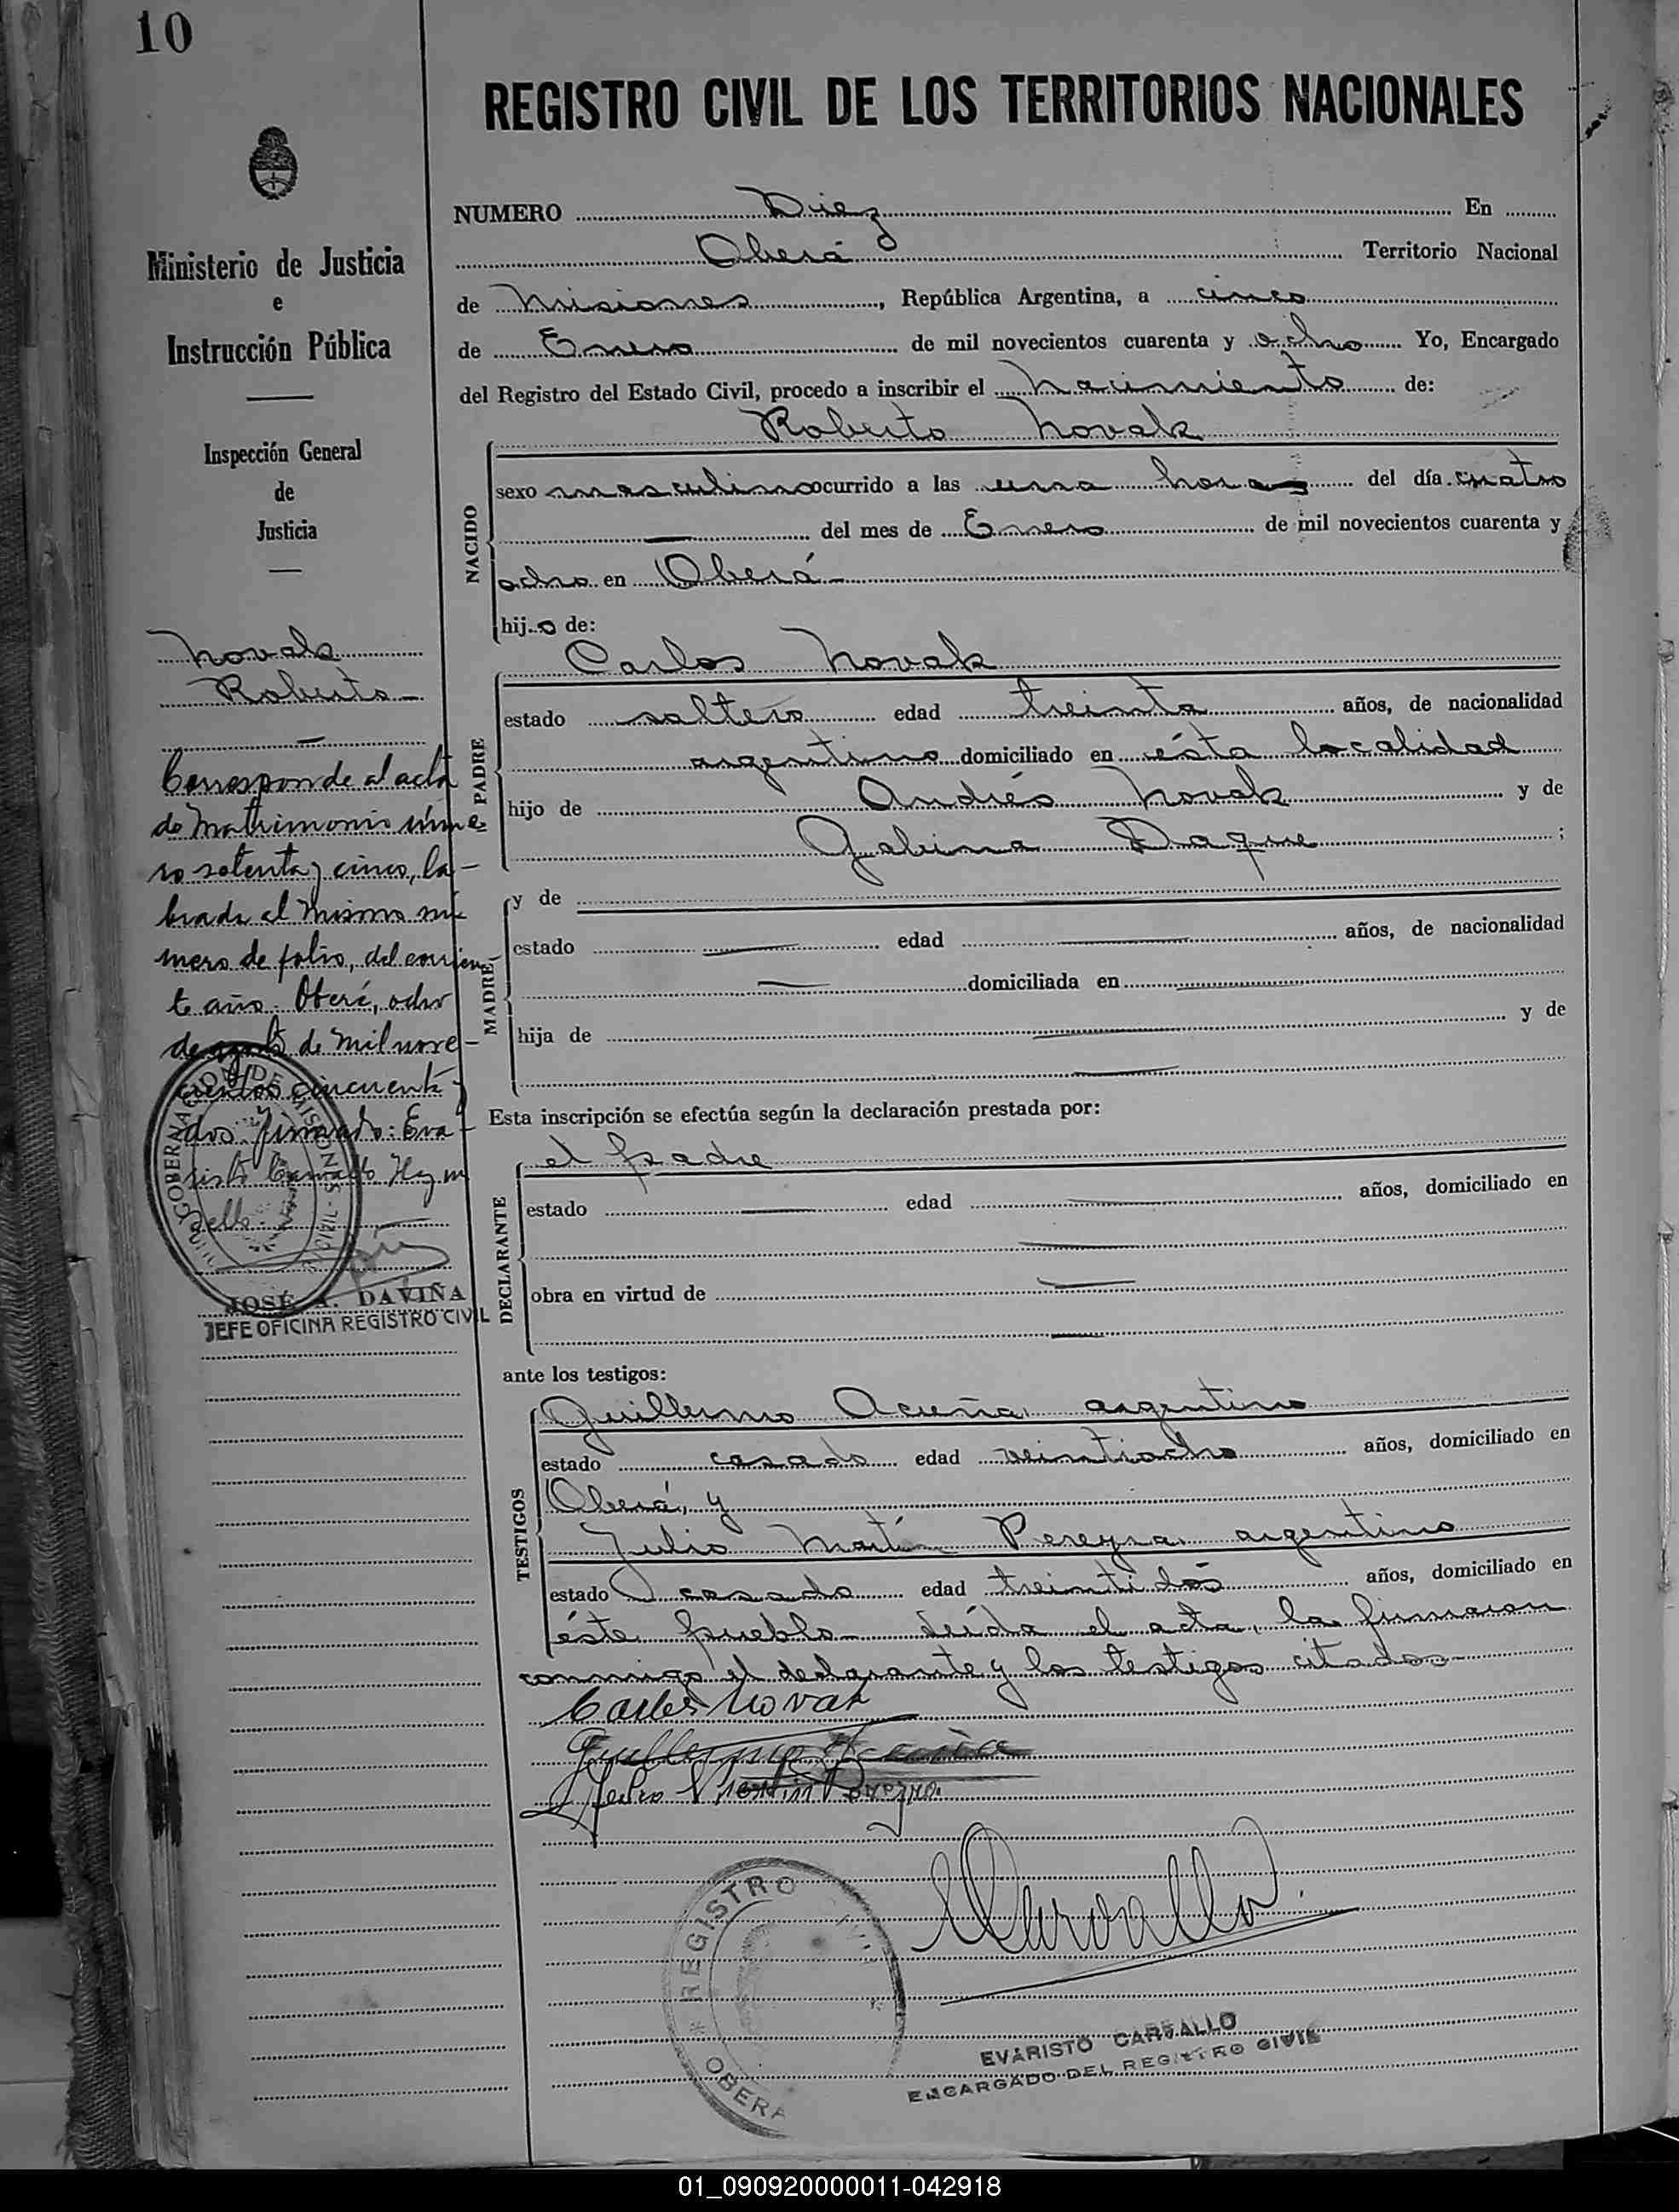 10
REGISTRO CIVIL DE LOS TERRITORIOS NACIONALES
Ministerio de Justicia
e
Instrucción Pública
Inspección General
de
Justicia
Novak
Roberto
Corresponde al acta
de Matrimonio núme
ro setenta y cinco, la-
brada al mismo nú
mero de folio, del corrien
te año. Oberá, ocho
de agosto de mil nove-
cientos cincuenta y
dos. Firmado: Eva-
risto Carvallo Hay un
sello.
GOBERNACION DE MISIONES
JOSÉ A. DAVIÑA
JEFE OFICINA REGISTRO CIVIL
NUMERO Diez En
Oberá Territorio Nacional
de Misiones, República Argentina, a cinco
de Enero de mil novecientos cuarenta y ocho Yo, Encargado
del Registro del Estado Civil, procedo a inscribir el nacimiento de:
Roberto Novak
NACIDO
sexo masculino ocurrido a las una hora del día cuatro
del mes de Enero de mil novecientos cuarenta y
ocho en Oberá
hijo de:
PADRE
Carlos Novak
estado soltero edad treinta años, de nacionalidad
argentino domiciliado en ésta localidad
hijo de Andrés Novak y de
Gabina Daque ;
MADRE
y de
estado edad años, de nacionalidad
domiciliada en
hija de y de
Esta inscripción se efectúa según la declaración prestada por:
DECLARANTE
el padre
estado edad años, domiciliado en
obra en virtud de
ante los testigos:
TESTIGOS
Guillermo Acuña argentino
estado casado edad veintiocho años, domiciliado en
Oberá, y
Julio Martín Pereyra argentino
estado casado edad treintidós años, domiciliado en
éste pueblo Leída el acta, la firmaron
conmigo el declarante y los testigos citados
Carlos Novak
Guillermo Acuña
Martin Pereyra
Carvallo
REGISTRO
OBERA
EVARISTO CARVALLO
ENCARGADO DEL REGISTRO CIVIL
01_090920000011-042918